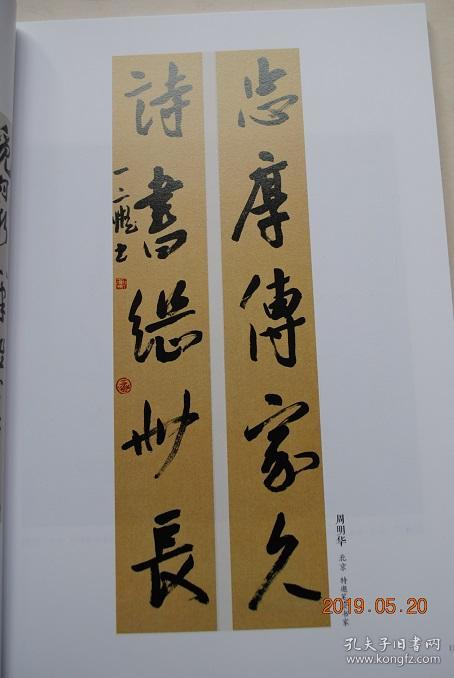 忠厚傳家久
詩書繼世長
周明华
北京 特邀
书家
2019.05.20
孔夫子旧书网
www.kongfz.com